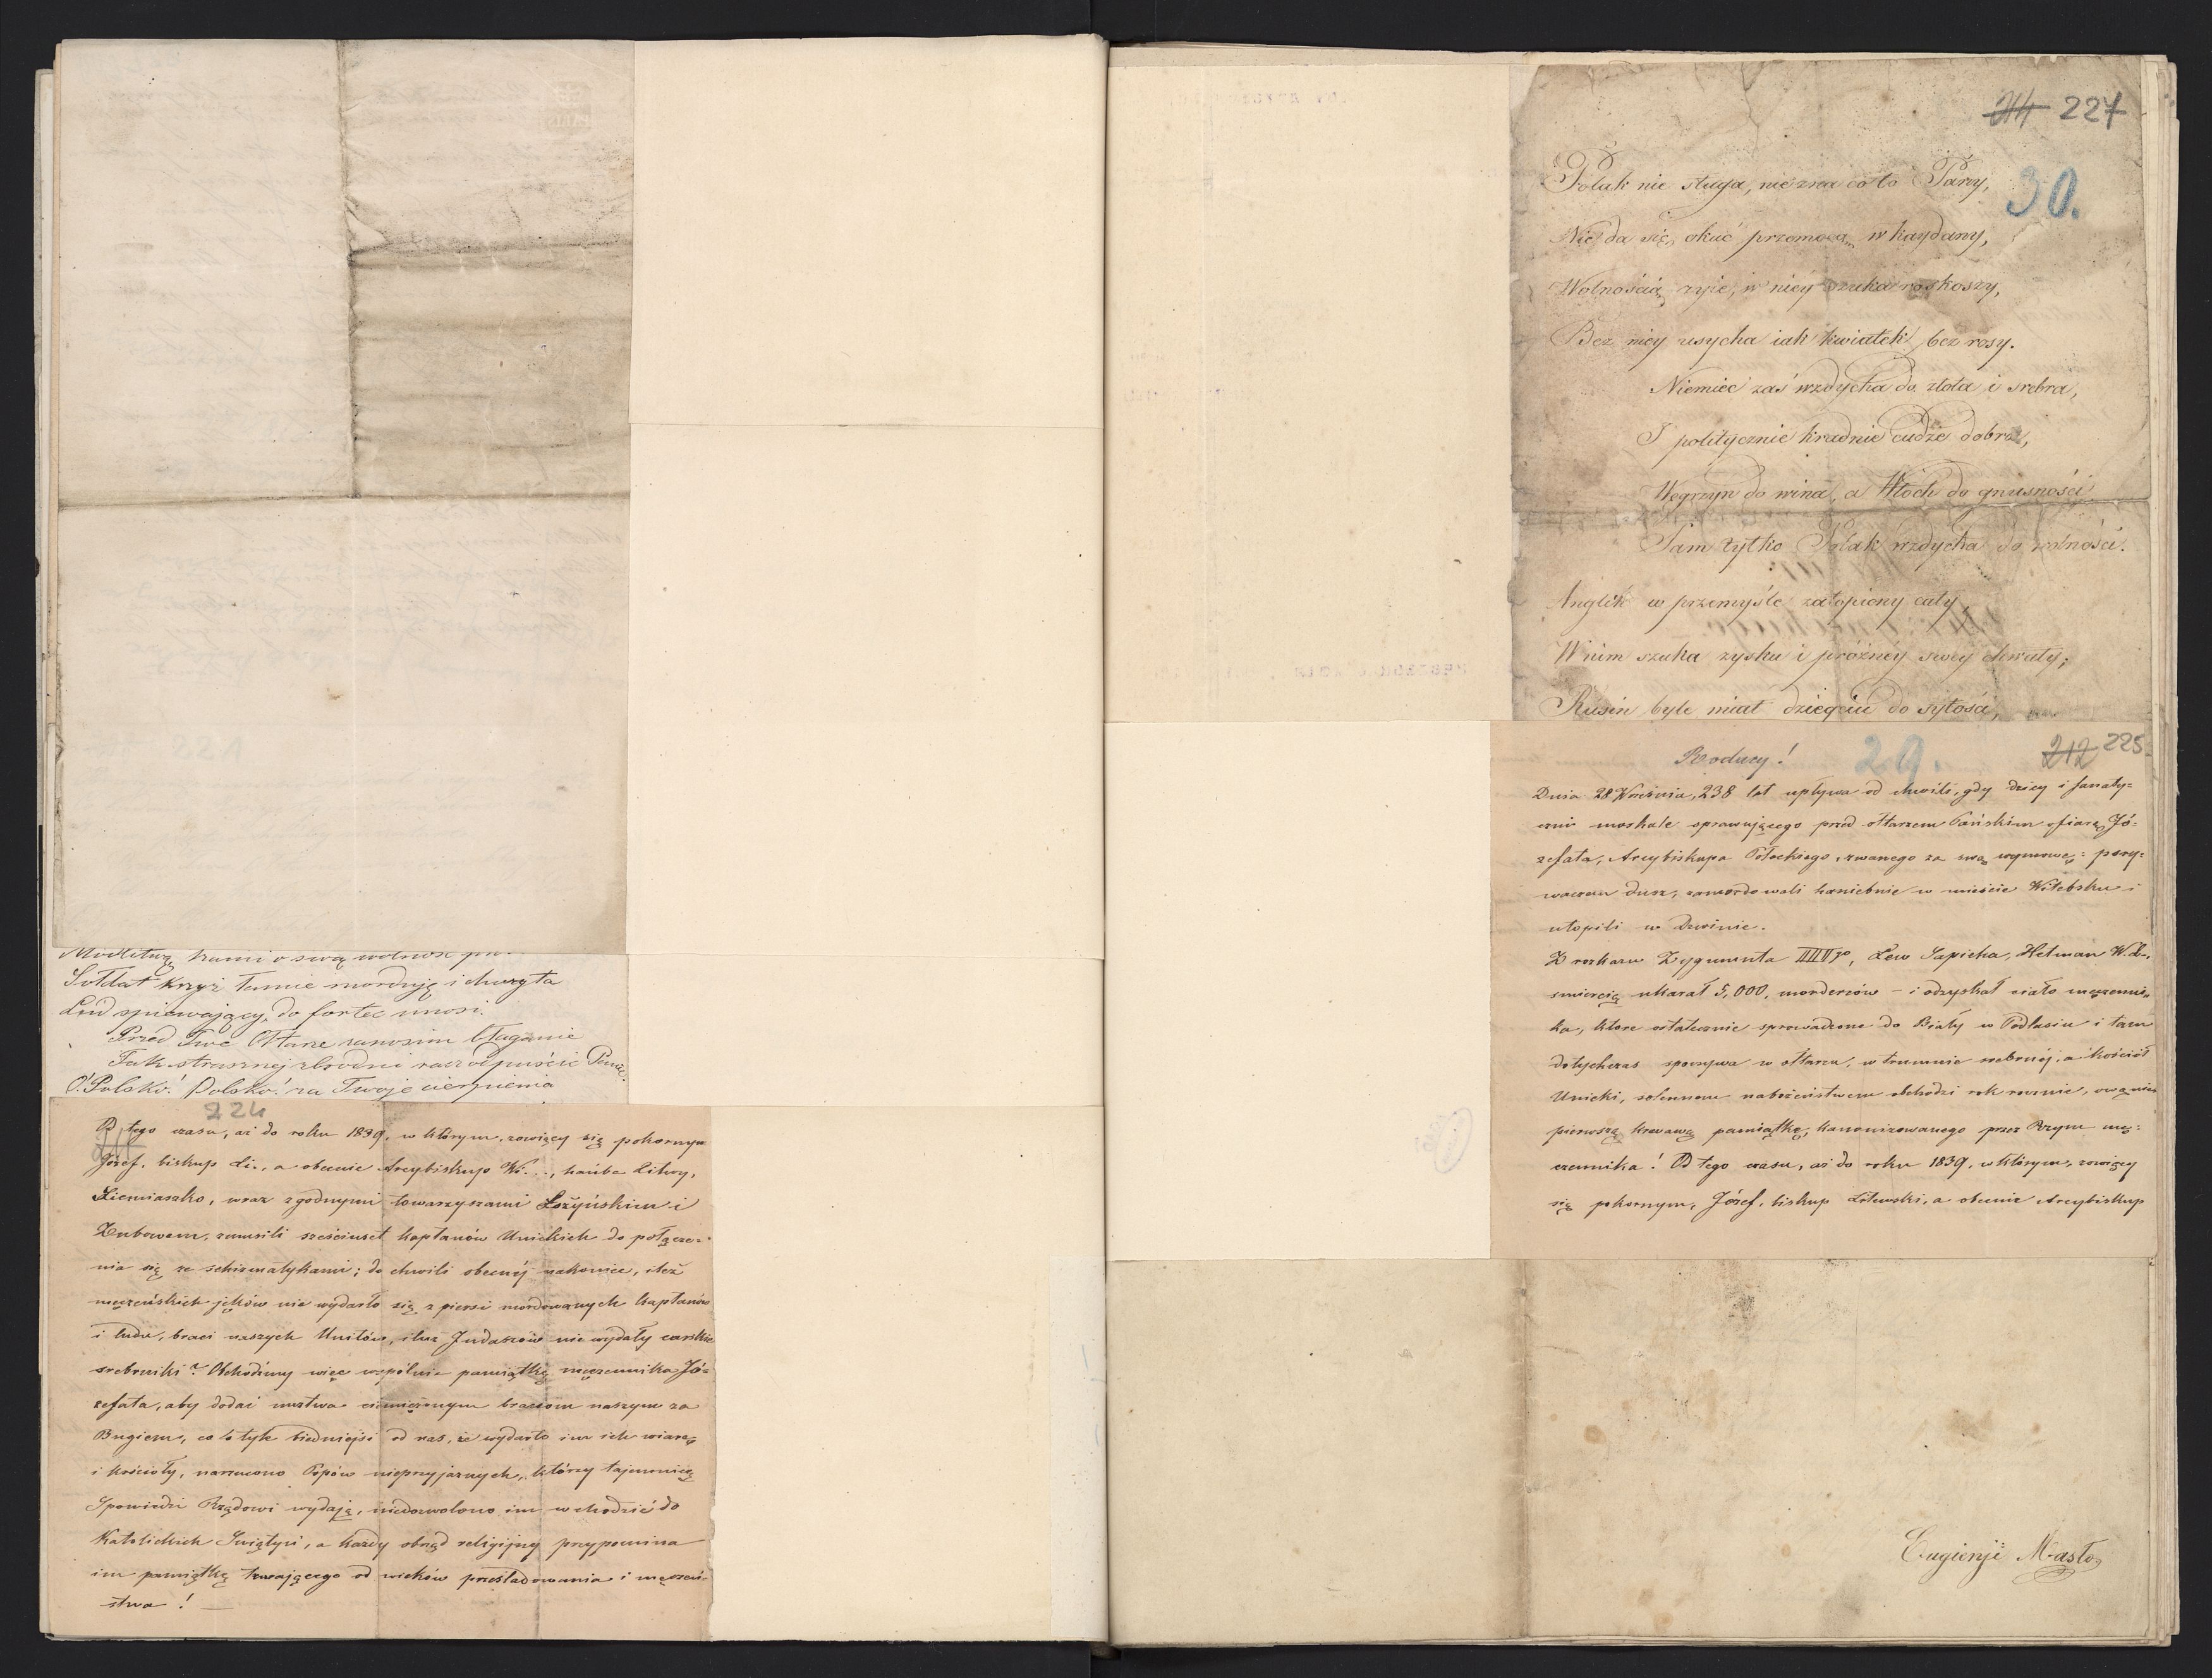 Sołdat krzyż łamie morduję i chwyta
Lud spiewający, do fortec unosi.
Przed Twe Ołtarze zanosim błaganie
Tak strasznej zbrodni racz odpuścić Panie.
O! Polsko! Polsko! za Twoje cierpienia
224
Od tego czasu, aż do roku 1839, w którym, zowiący się pokornym
Józef, biskup Li.., a obecnie Arcybiskup Wi..., hańba Litwy,
Siemiaszko, wraz z godnymi towarzyszami Łożyńskim i
Zubowem, zmusili sześciuset kapłanów Unickich do połącze=
nia się ze schizmatykami; do chwili obecnéj nakoniec, ileż
męczeńskich jęków nie wydarło się z piersi mordowanych kapłanów
i ludu, braci naszych Unitów, iluż Judaszów nie wydały carskie
srebrniki? Obchodźmy więc wspólnie pamiątkę męczennika Jó=
zefata, aby dodać męztwa ciemiężonym braciom naszym za
Bugiem, co o tyle biedniejsi od nas, że wydarto im ich wiarę,
i kościoły, narzucono Popów nieprzyjaznych, którzy tajemnicę
Spowiedzi Rządowi wydają, niedozwolono im wchodzić do
Katolickich Świątyń, a każdy obrzęd religijny przypomina
im pamiątkę trwającego od wieków prześladowania i męczeń-
stwa! —
214 227
30.
Polak nie sługa, nie zna co to Pany,
Nie da się okuć przemocą w kaydany,
Wolnością żyie, w niey szuka roskoszy,
Bez niey usycha iak kwiatek bez rosy.
Niemiec zaś wzdycha do złota i srebra,
I politycznie kradnie cudze dobra,
Węgrzyn do wina, a Włoch do gnusności
Sam tylko Polak wzdycha do wolności.
Anglik w przemyśle zatopiony cały,
W nim szuka zysku i prózney swey chwały;
Rusin byle miał dziegciu do sytości,
Rodacy!
29.
212 225
Dnia 28 Września, 238 lat upływa od chwili, gdy dzicy i fanaty=
czni moskale sprawującego przed ołtarzem Pańskim ofiarę Jó=
zefata, Arcybiskupa Połockiego, zwanego za swą wymowę: pory=
waczem dusz, zamordowali haniebnie w mieście Witebsku i
utopili w Dwinie.
Z rozkazu Zygmunta IIIgo, Lew Sapieha, Hetman W. L.,
śmiercią ukarał 5,000, morderców – i odzyskał ciało męczenni=
ka, które ostatecznie sprowadzone do Biały w Podlasiu i tam
dotychczas spoczywa w ołtarzu, w trumnie srebrnéj, a kościół
Unicki, solennem nabożeństwem obchodzi rok rocznie, ową
pierwszą krwawą pamiątkę, kanonizowanego przez Rzym mę=
czennika! Od tego czasu, aż do roku 1839, w którym, zowiący
się pokornym, Józef, biskup Litewski, a obecnie Arcybiskup
Eugienji Masło